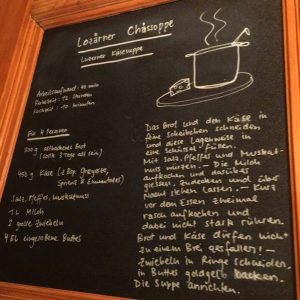 Lozärner Chässoppe
Luzerner Käsesuppe
Arbeitsaufwand: 40 min
Ruhezeit: 12 Stunden
Kochzeit: 10 minuten
Für 4 Personen
altbackenes Brot
(sollte 2 Tage alt sein)
450 g Käse (z.Bsp. Greyezer,
Sprinz & Emmentaler)
Salz, Pfeffer, Muskatnuss
1 L Milch
2 große Zwiebeln
4 EL eingesottene Butter
Das Brot und den Käse in
feine Scheibchen schneiden
und diese Lagenweise in
eine Schüssel füllen.
Mit Salz, Pfeffer und Muskat-
nuss würzen. - Die Milch
aufkochen und darüber
giessen. Zudecken und über
Nacht ziehen lassen. - Kurz
vor dem Essen zweimal
rasch aufkochen und
dabei nicht stark rühren
Brot und Käse dürfen nicht
zu einem Brei zerfallen! -
Zwiebeln in Ringe schneiden,
in Butter goldgelb backen.
Die Suppe anrichten.